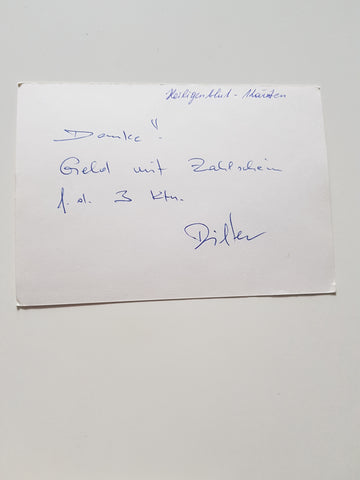 Heiligenblut - Kärnten
Danke!
Geld mit Zahlschein
f. d. 3 Ktn.